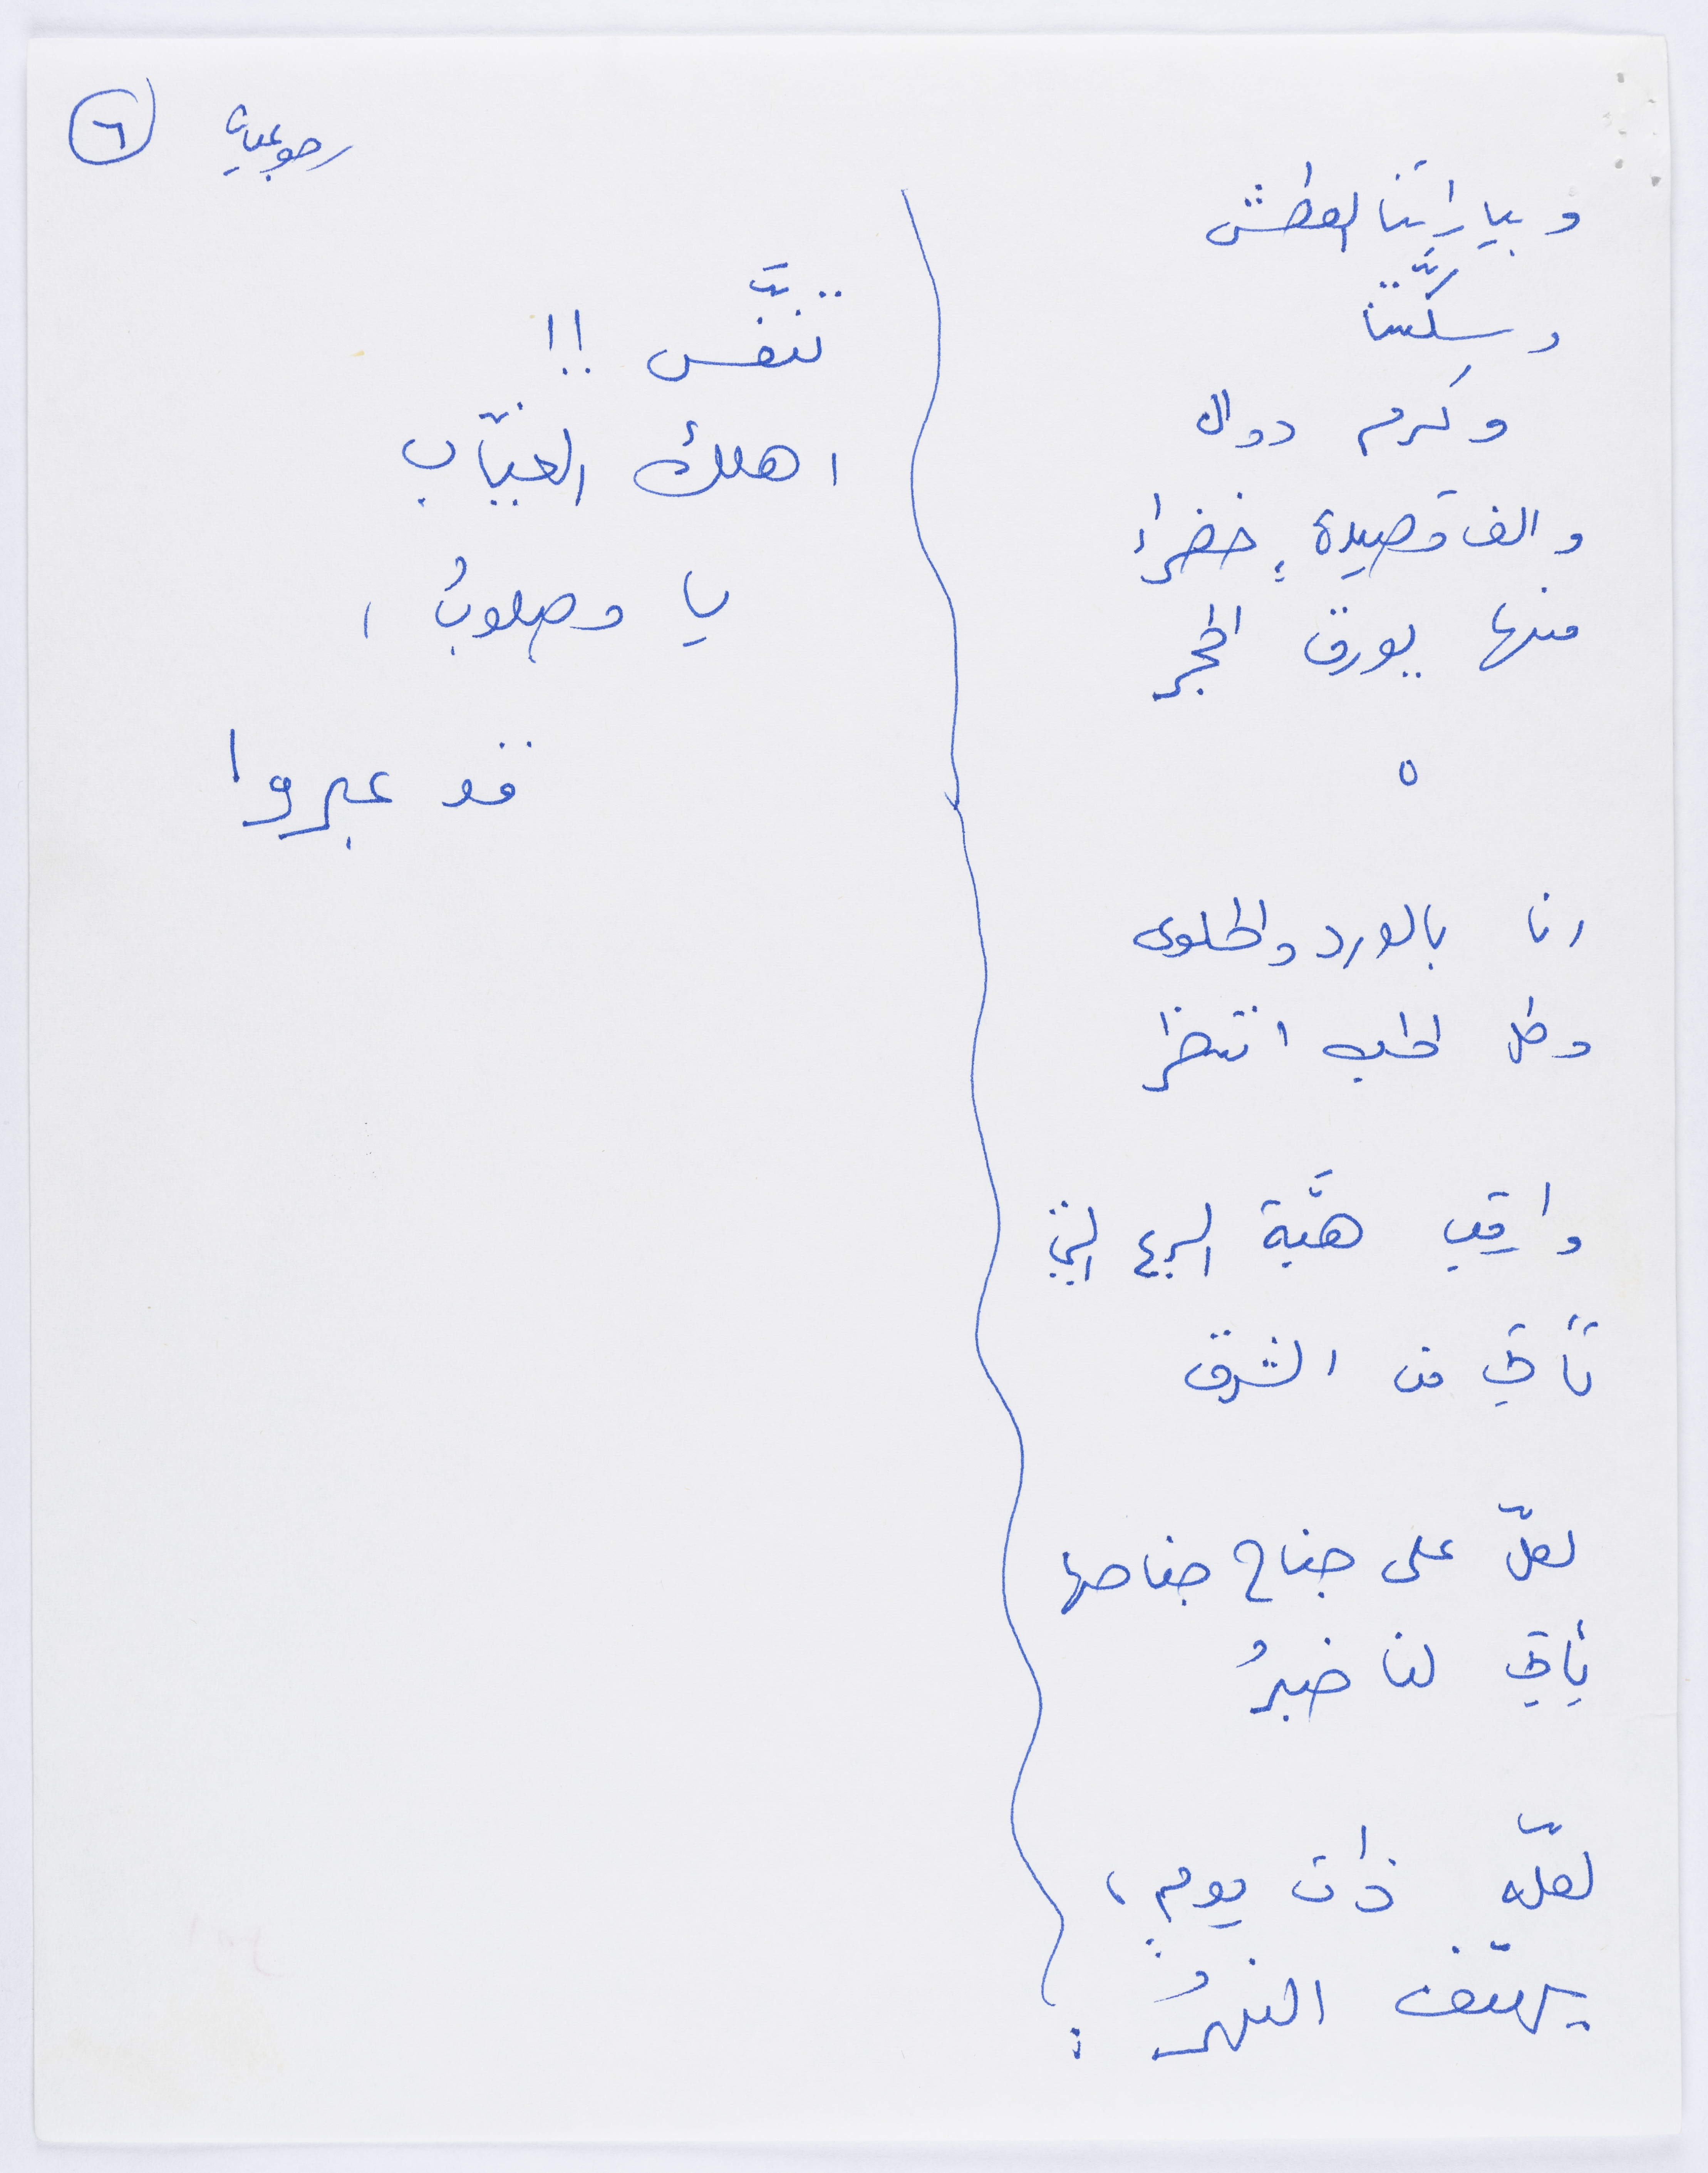 رجوعيات ٦
وبياراتنا العطشى
وسكّتنا
وكرم دوال
والف قصيدةٍ خضراء
منها يورق الحجر
٥
انا بالورد والحلوى
وكل الحب انتظر
وارقب هبَّة الريح التي
تأتي من الشرق
لعلّ على جناح جناحها
يأتي لنا خبرُ
لعلّه ذات يومٍ،
يهتف النهرُ :
تنفَّس !!
اهلك الغيّاب
يا مصلوبُ ،
قد عبروا